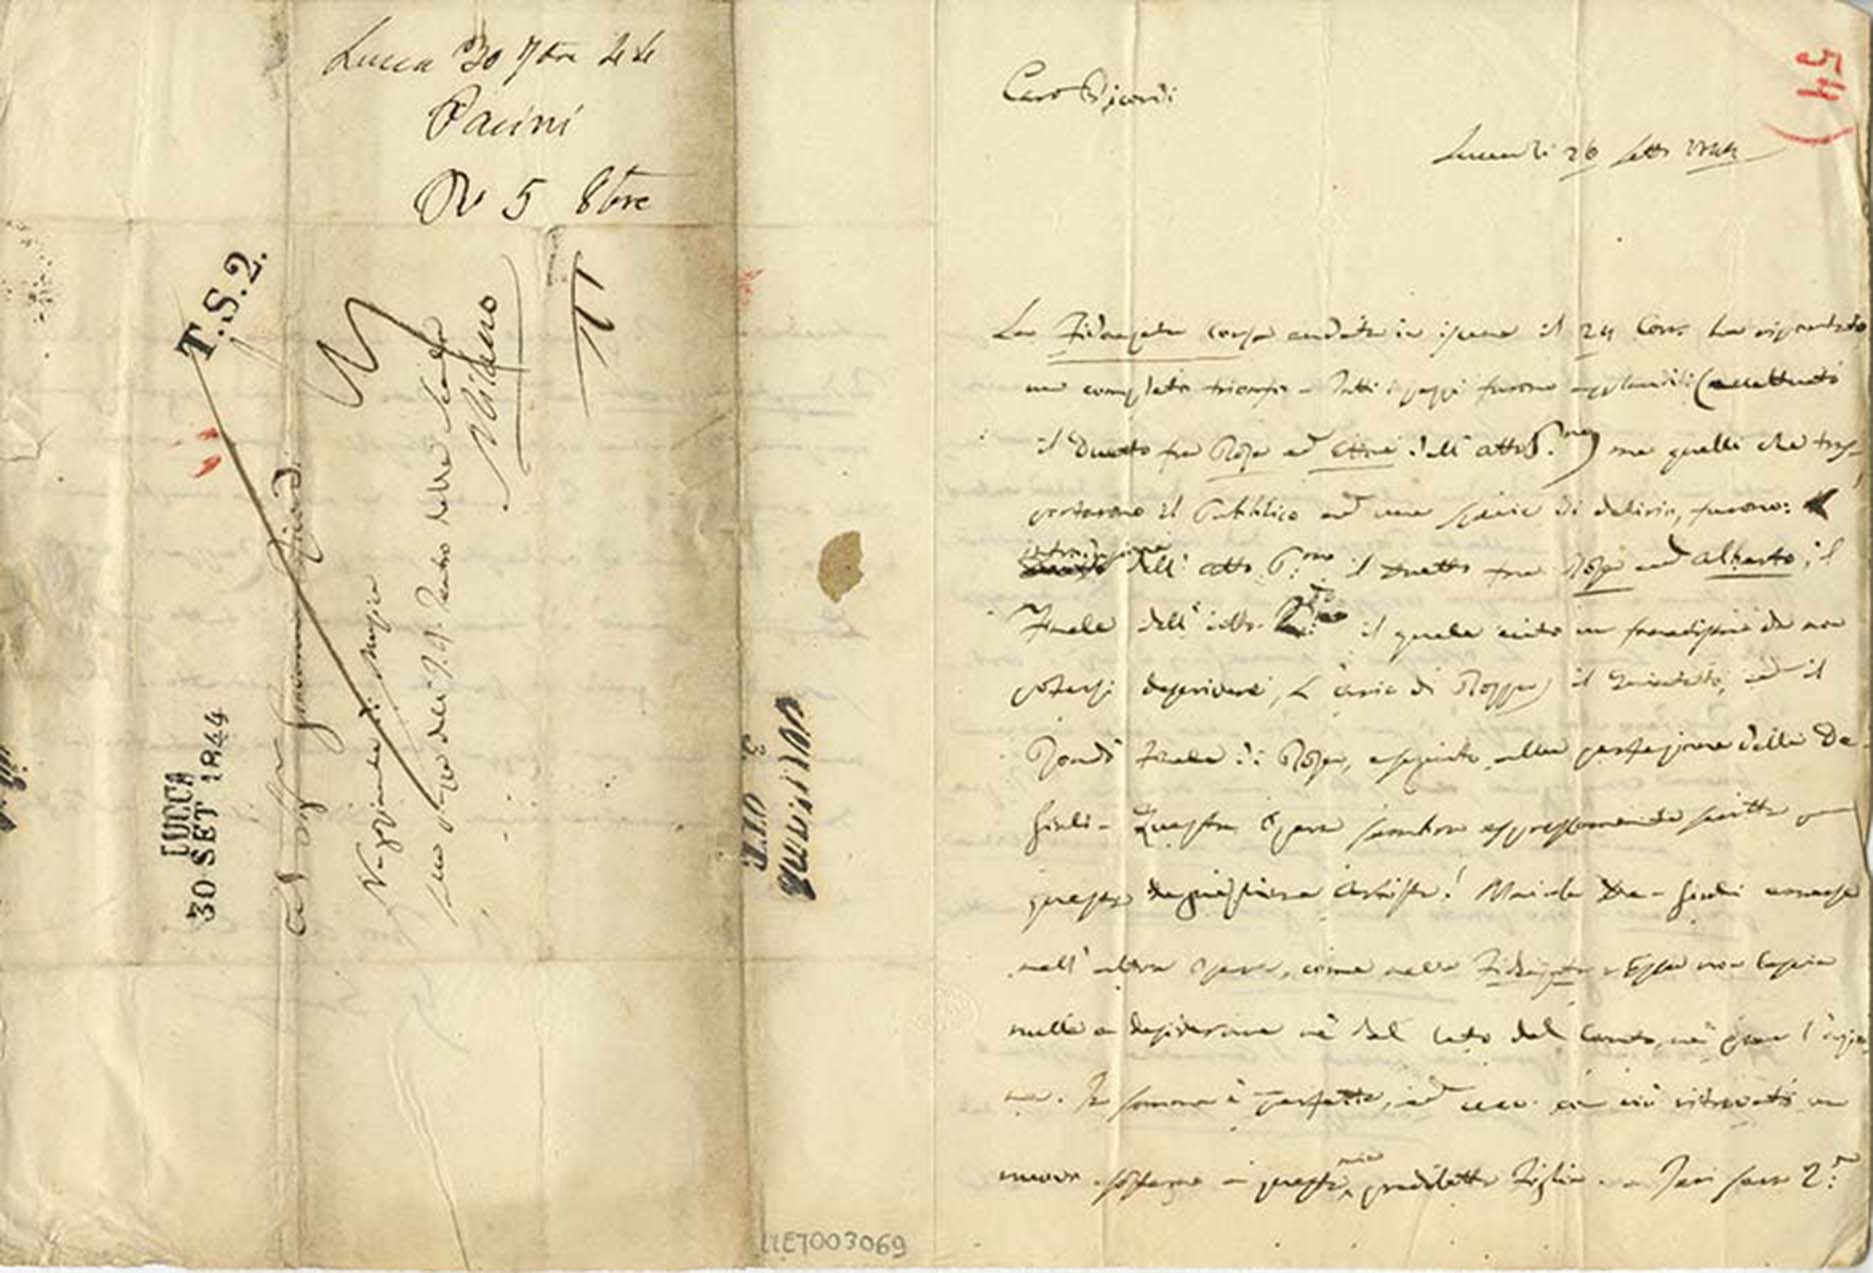 Lucca 30 7bre 44
Pacini
R 5 8bre
T.S.2.
Al Sigr Giovanni Ricordi
Negoziante di Musica
Teatro della Scala
Milano
LUCCA
30 SET 1844
MILANO
OTT. 3
54)
Caro Ricordi
Lucca li 26 sett 1844
La Fidanzata corsa andata in iscena il 24 Corr. ha riportato
un completo trionfo - Tutti i pezzi furono applauditi (eccettuato
il Duetto fra Rosa ed Ettore dell' atto P.mo) ma quelli che tras-
portarono il Pubblico ad una specie di delirio, furono: L'
introduzione dell' atto P.mo il Duetto fra Rosa ed Alberto, il
Finale dell' atto 2.do il quale eccitò un fanatismo da non
potersi descrivere, L'aria di Piero il Quintetto, ed il
Rondò Finale di Rosa, eseguito alla perfezione dalla De-
Giuli - Questa Opera sembra espressamente scritta per
questa degnissima Artista! Mai la De-Giuli emerse
nell' altra Opera, come nella Fidanzata. Essa non lascia
nulla a desiderare nè dal lato del Canto, nè per l'azio-
ne. In somma è perfetta, ed ecco che ho ritrovato un
nuovo sostegno a questa mia prediletta Figlia - Jeri sera 2.a
LLET003069